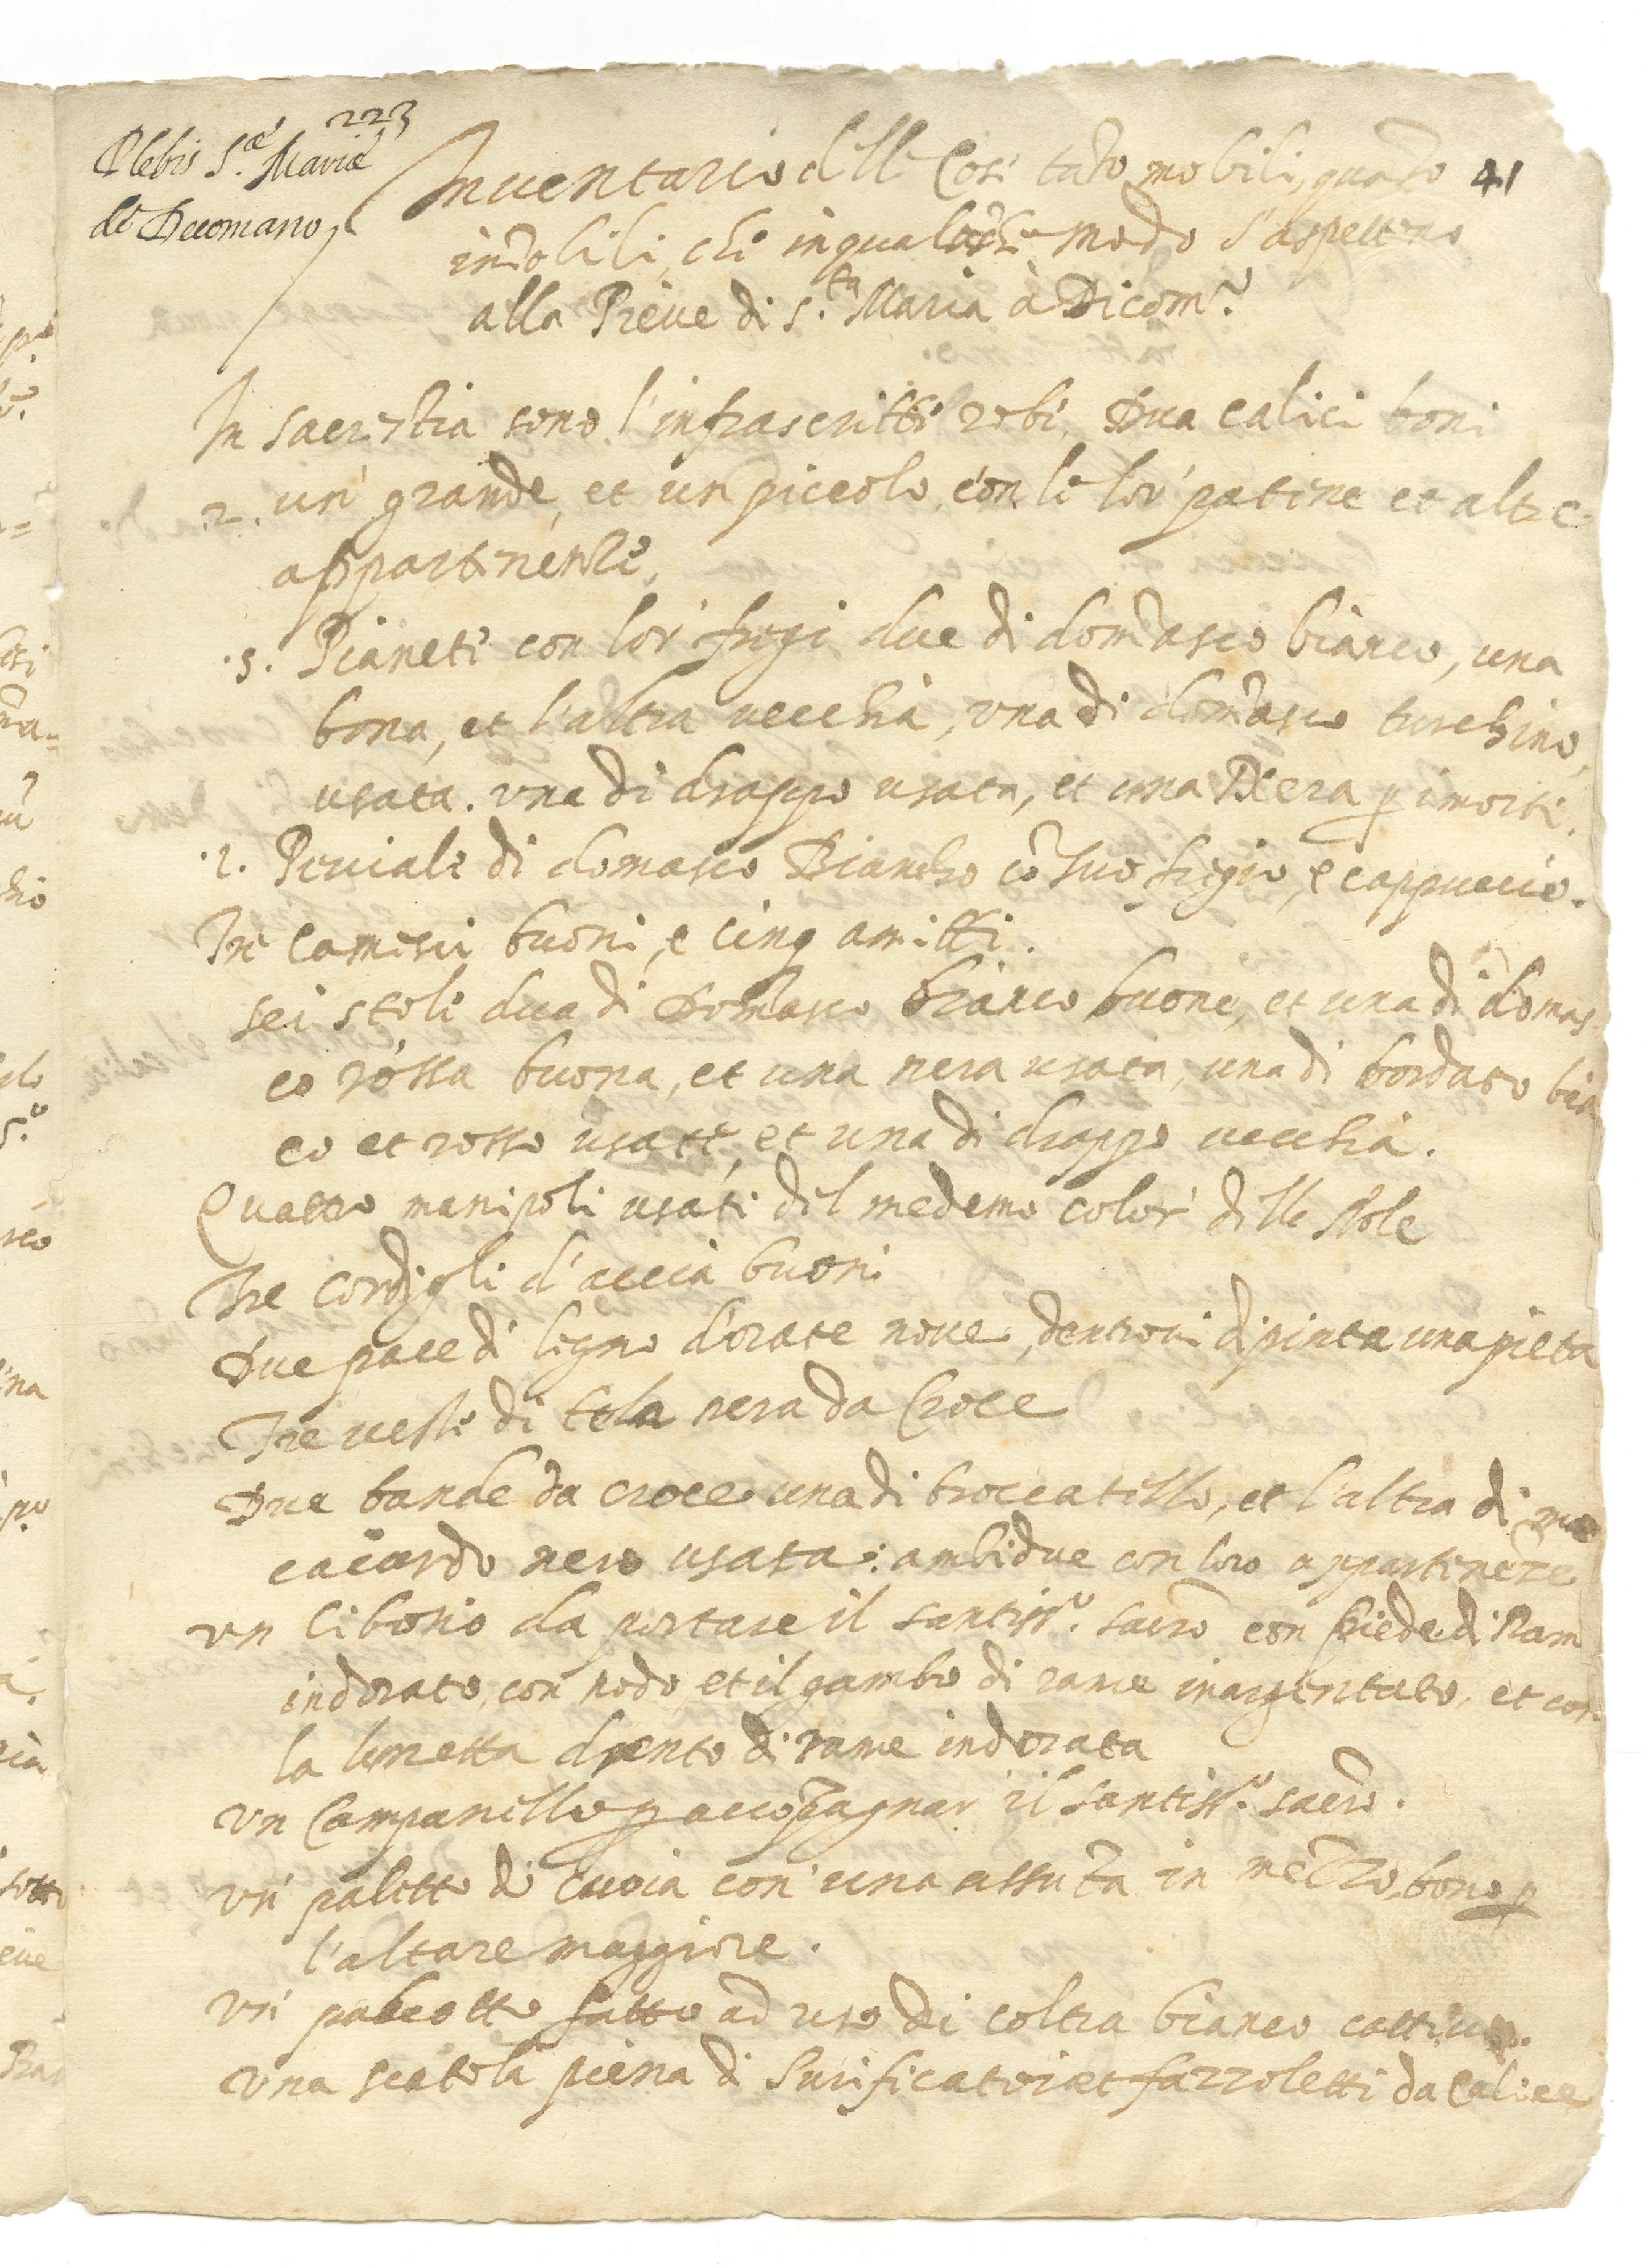 223
Plebis S.ae Mariae
de Decomano
41
Inventario delle Cose tanto mobili, quanto
imobili, che in qualunche modo s'aspettono
alla Pieve di S.ta Maria à Dicom.o
In sacrestia sono l'infrascritte robe. Dua calici boni
.2. un' grande, et un piccolo, con le lor' patene et altre
appartinenze,
.5. Pianete con lor' fregi due di domasco bianco, una
bona, et l'altra vecchia, una di domasco turchino
usata. una di drappo usata, et una Nera p i morti.
.1. Peviale di domasco Biancho cō suo fregio, e cappuccio.
Tre camisci buoni, e cinq amitti.
sei stole dua di Domasco bianco buone, et una di domas
co rossa buona, et una nera usata, una di bordato bian
co et rosso usate, et una di drappo vecchia.
Quattro manipoli usati del medemo color' delle stole
Tre cordigli d'accia buoni
Due pace di legno dorate nove, dentrovi dipinta una pietà
Tre veste di tela nera da Croce
Due bande da croce una di broccatello, et l'altra di mo
caiardo nero usata: ambidue con loro appartinēze
un ciborio da portare il santiss.o sacro con piede di Ram
indorato, con nodo, et il gambo di rame inargentato, et con
la lunetta drento di rame indorata
un Campanello p accōpagnar il santiss.o sacro.
un' paliotto di cuoia con' una assunta in mezzo, bono p
l'altare maggiore.
un' paleotto fatto ad uso di coltra bianco cattivo.
una scatola piena di Purificatoi et fazzoletti da Calice